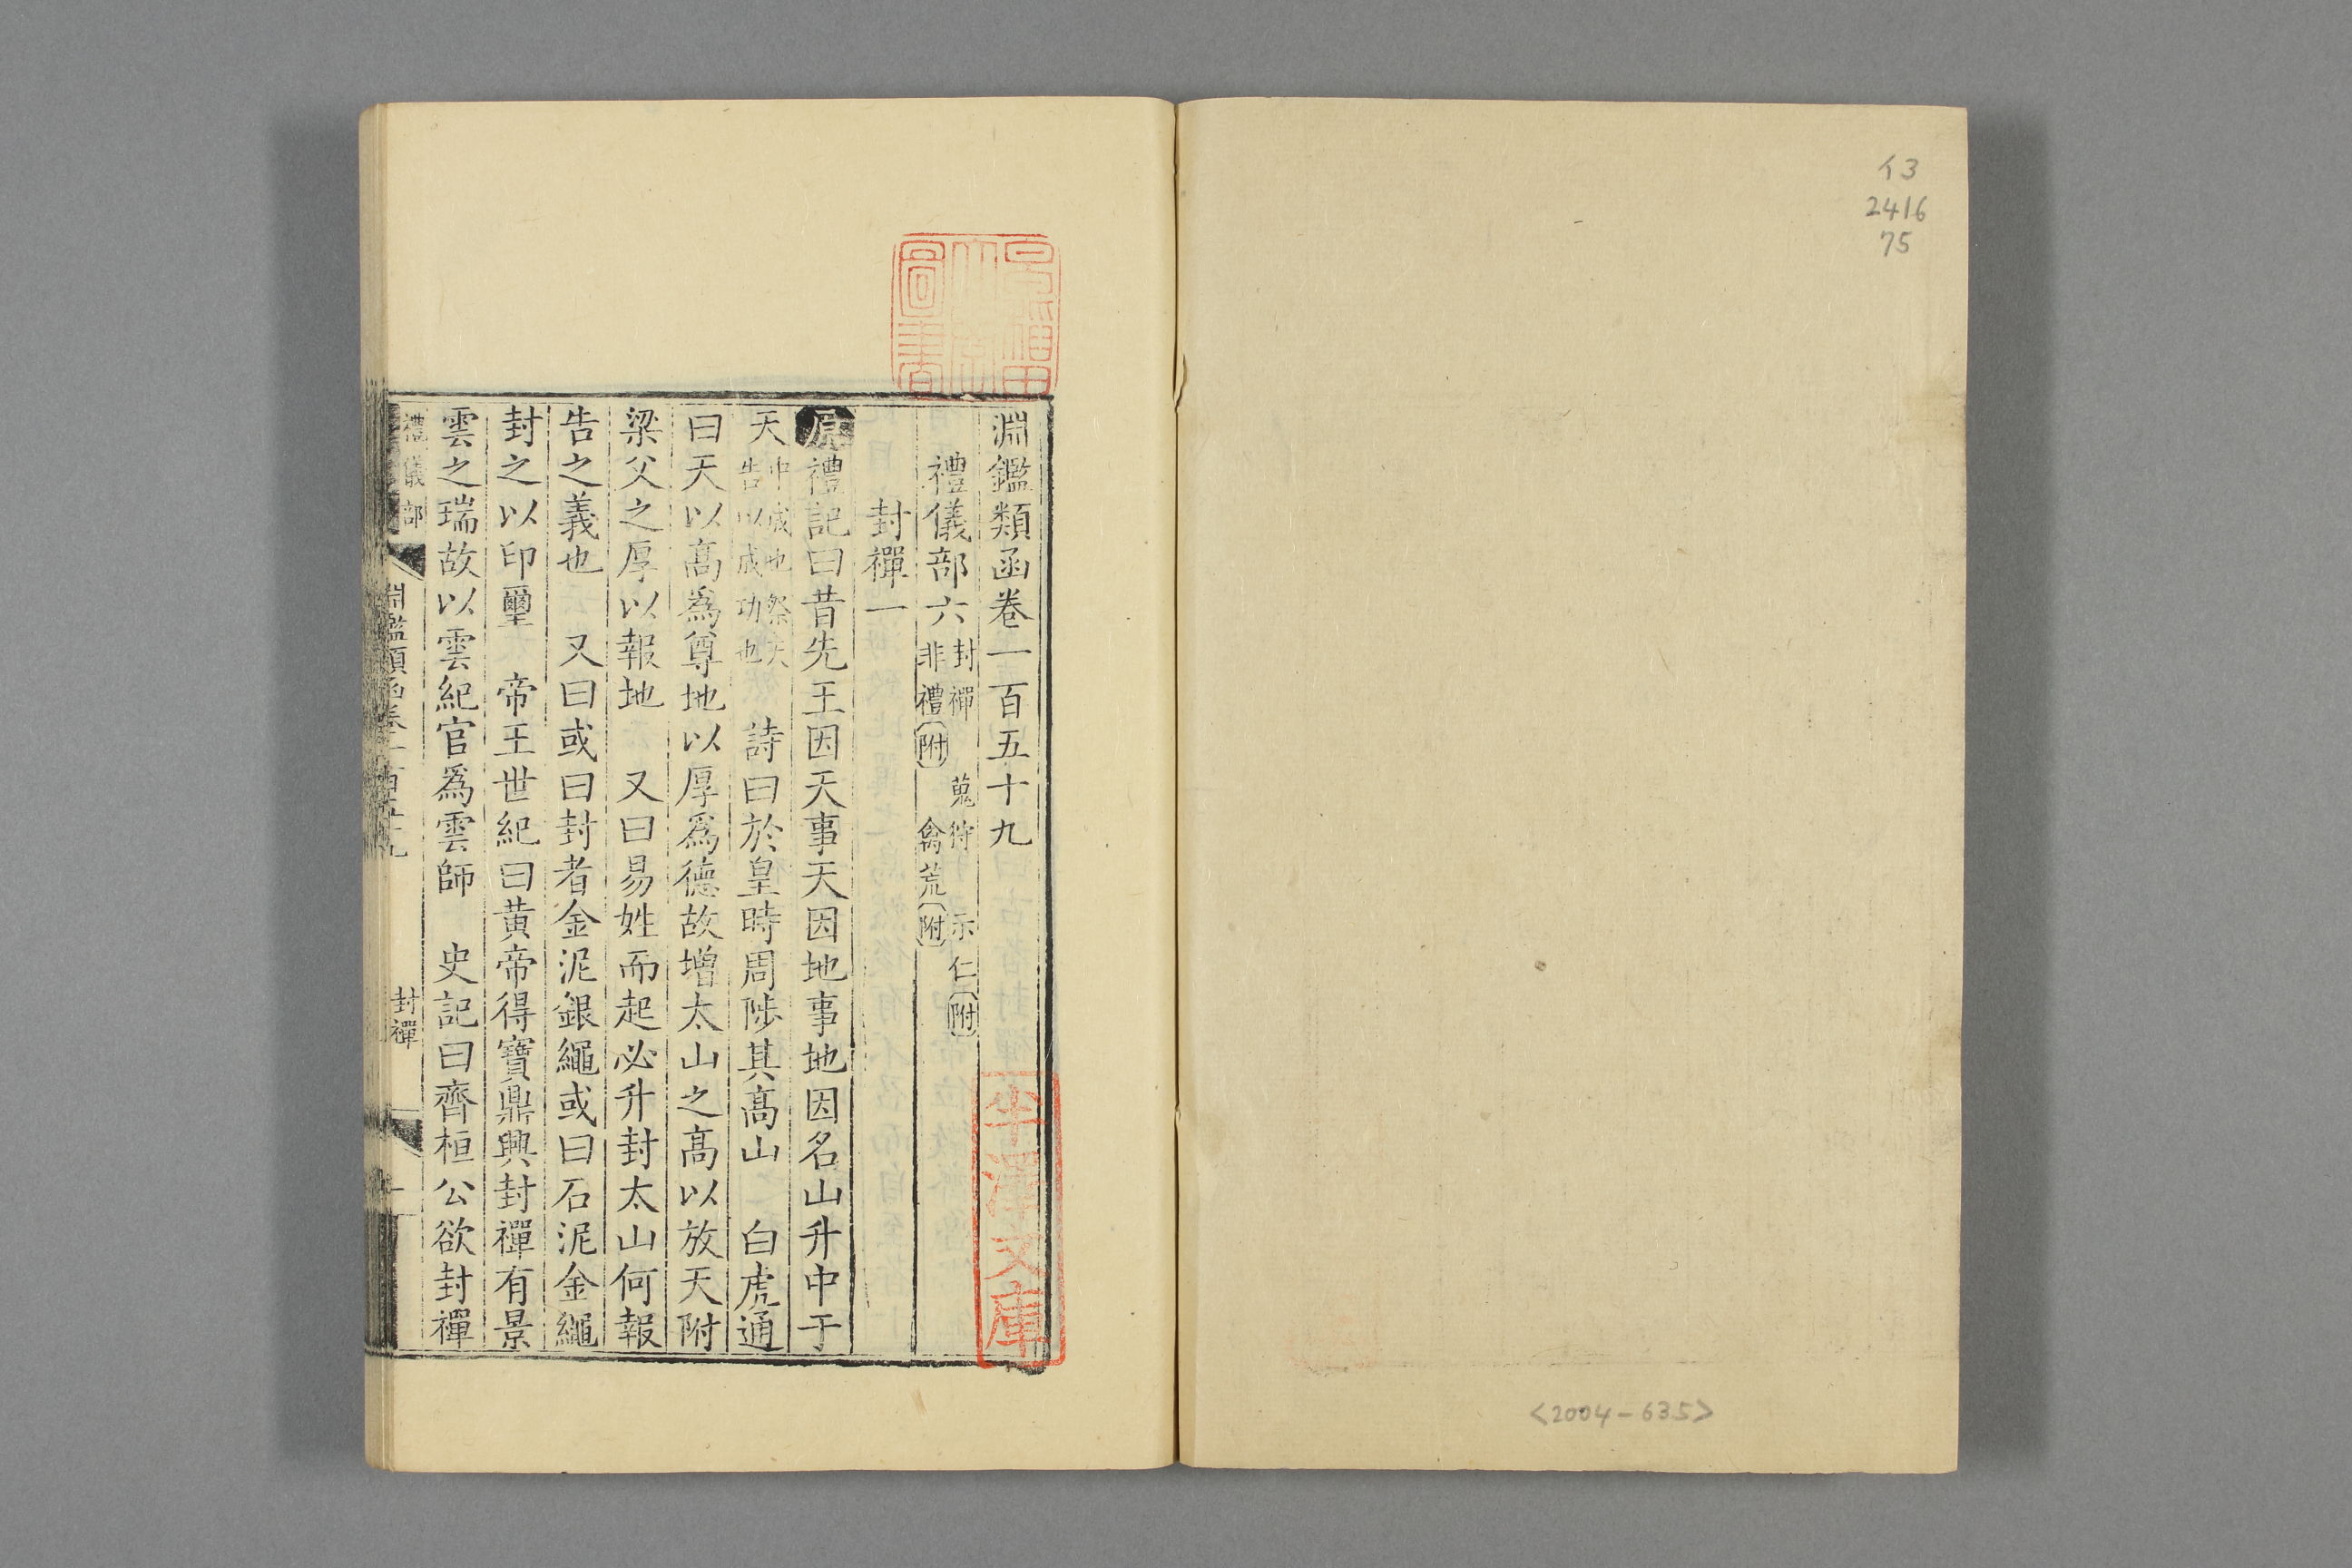 イ3
2416
75
<2004-635>
淵鑑類函卷一百五十九
禮儀部六 封禪 蒐狩 示仁附
非禮附 禽荒附
封禪一
原禮記曰昔先王因天事天因地事地因名山升中于
天 中成也祭天告以成功也 詩曰於皇時周陟其高山 白虎通
曰天以高為尊地以厚為德故增太山之高以放天附
梁父之厚以報地 又曰易姓而起必升封太山何報
告之義也 又曰或曰封者金泥銀繩或曰石泥金繩
封之以印璽 帝王世紀曰黃帝得寶鼎興封禪有景
雲之瑞故以雲紀官為雲師 史記曰齊桓公欲封禪
禮儀部 淵鑑類函卷一百五十九 封禪 一
圖書
半澤文庫